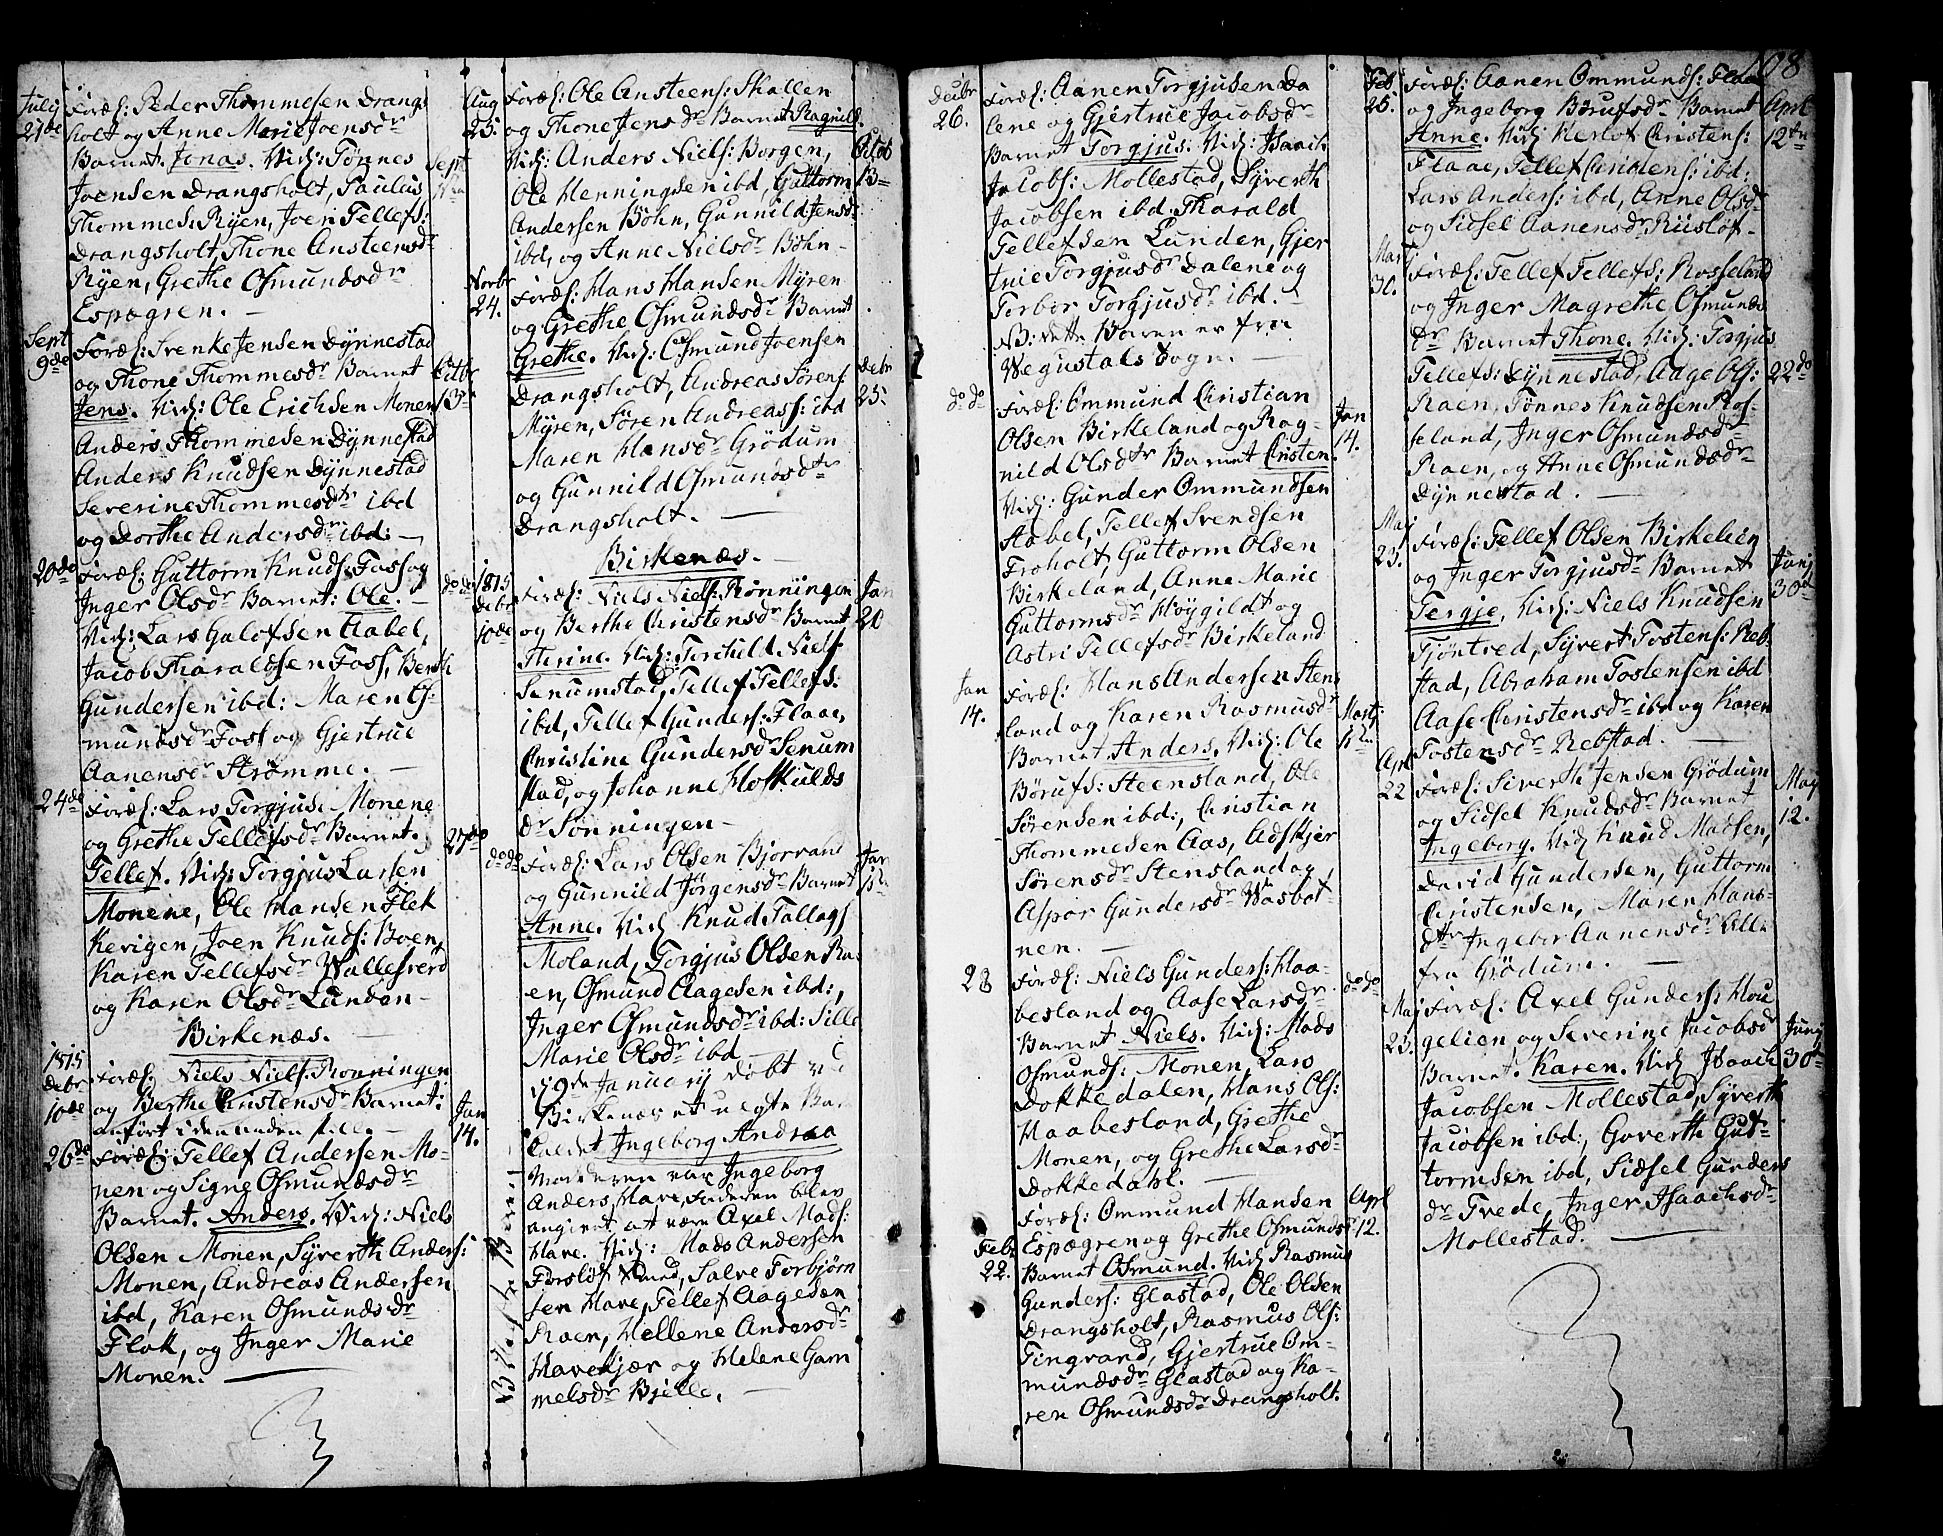 108
July
21de
Foræl: Peder Thommesen Drangs
holt og Anne Marie Joensdr
Barnet. Jonas. Vid: Tønnes
Joensen Drangsholt, Saulus
Thommes: Ryen, Joen Tellefs:
Drangsholt, Thone Ansteensdr
Ryen, Grethe Osmundsdr
Espægren. —
Sept
9de
Foræl: Svenke Jensen Dynnestad
og Thone Thommesdr Barnet
Jens. Vid: Ole Erichsen Monen
Anders Thommesen Dynnestad
Anders Knudsen Dynnestad
Severine Thommesdtr ibd
og Dorthe Andersdr ibd: —
20de
Foræl: Guttorm Knuds: Foss og
Inger Olsdr Barnet: Ole. —
Vid: Lars Galofsen Aabel,
Jacob Tharaldsen Foss, Berth
Gundersen ibd: Maren Os-
mundsdr Foss og Gjertrue
Aanensdr Strømme. —
24de
Foræl: Lars Torgjus: Monene
og Grethe Tellefsdr Barnet.
Tellef. Vid: Torgjus Larsen
Monene, Ole Hansen Flek
Kevigen, Joen Knuds: Boen,
Karen Tellefsdr Wallesverd
og Karen Olsdr Lunden —
Birkenæs. —
1815
Debr
10de
Foræl: Niels Niels: Rønningen
og Berthe Christensdr Barnet:
anført i den anden
26de
Foræl: Tellef Andersen Mo-
nen og Signe Osmundsdr
Barnet. Anders. Vid: Niels
Olsen Monen, Syverth Anders:
Monen, Andreas Andersen
ibd, Karen Osmundsdr
Flok, og Inger Marie
Monen. —
Sept
Octbr
13
do do
27do
Jan
14.
Aug
25.
Foræl: Ole Ansteens: Skallen
og Thone Jensdr Barnet Ragnild.
Vid: Anders Niels: Borgen,
Ole Henningsen ibd, Guttorm
Andersen Böhn, Gunnild Jensdr
ibd, og Anne Nielsdr Böhn —
Norbr
24.
Foræl: Hans Hansen Myren
og Grethe Osmundsdr Barnet
Grethe. Vid: Osmund Joensen
Drangsholt, Andreas Sørens
Myren, Søren Andreass: ibd
Maren Hansdr Grödum
og Gunnild Osmundsdtr
Drangsholt. —
Birkenæs. —
1815
Debr
10de
Foræl: Niels Niels: Rønningen
og Berthe Christensdr Barnet
Therine. Vid: Terchild Niels
Senumstad, Tellef Tellefs:
ibd, Tellef Gunders: Flaae,
Christine Gundersdr Senum
stad, og Johanne Hoskulds
dr Sønningen —
do do
Foræl: Lars Olsen Bjorvand
og Gunnild Jørgensdr Barnet
Anne. Vid: Knud Tallags
Moland, Torgjus Olsen Ra-
en, Osmund Aagesen ibd:,
Inger Osmundsdr ibd: Sille
Marie Olsdr ibd —
19de January döbt
Birkenæs et uegte
kaldet Ingeborg Andrea
Moderen var Ingeborg
Anders: Have, Faderen blev
angivet at være Axel Mads:
Have. Vid: Mads Andersen
Salve Torbjørn
sen Have, Tellef Aagesen
Raen, Hellene Andersdr
Havekjær og Helene Gam
melsdr Bjelle. —
Octob
13
Debr
25.
Jan
20
Jan
Decbr
26.
Foræl: Aanen Torgjusen Da
lene og Gjertrue Jacobsdr
Barnet Torgjus: Vid: Isaach
Jacobs: Mollestad, Syverth
Jacobsen ibd. Tharald
Tellefsen Lunden, Gjer
true Torgjusdr Dalene og
Torbor Torgjusdr ibd. —
NB: dette Barn er fra
Wegustals Sogn. —
do do
Foræl: Ommund Christian
Olsen Birkeland og Rag-
nild Olsdtr Barnet Christen.
Vid: Gunder Ommundsen
Stabel, Tellef Svendsen
Froholt, Guttorm Olsen
Birkeland, Anne Marie
Guttormsdr Höygildt og
Astri Tellefsdr Birkeland
Jan
14.
Foræl: Hans Andersen Stens
land og Karen Rasmusdr
Barnet Anders. Vid: Ole
Børufs: Steensland, Ole
Sörensen ibd:, Christian
Thommesen Aas, Adskjer
Sørensdr Stensland og
Aspor Gundersdr Wasbot-
nen. —
28
Foræl: Niels Gunders: Haa-
besland og Aase Larsdr
Barnet Niels. Vid: Mads
Osmunds: Monen, Lars
Dokkedalen, Hans Ols:
Haabesland, Grethe
Monen, og Grethe Larsdr
Dokkedahl. —
Febr
22.
Foræl: Ommund Hansen
Espægren og Grethe Osmundsdr
Barnet Osmund. Vid Rasmus
Gunders: Glastad, Ole Olsen
Drangsholt, Rasmus Ols:
Tingvand, Gjertrue Om-
mundsdr Glastad og Ka-
ren Osmundsdr Drangsholt.
Jan
14.
Martj
do do
Aprl
12.
Feb.
25.
Foræl: Aanen Ommunds: Flaae
og Ingeborg Børufsdr Barnet
Anne. Vid Herlof Christens:
Flaae, Tellef Christens: ibd:
Lars Anders: ibd, Anne Olsdr
og Sidsel Aanensdr Riislöf —
Mart
30.
Foræl: Tellef Tellefs: Rosseland
og Inger Magrethe Osmunds
dr Barnet Thone. Vid: Torgjus
Tellefs: Dynnestad, Aage Ols:
Raen, Tønnes Knudsen Ros-
seland, Inger Osmundsdr
Raen, og Anne Osmundsdr
Dynnestad. —
Maj
23.
Foræl: Tellef Olsen Birkelien
og Inger Torgjusdr Barnet
Tergje, Vid: Niels Knudsen
Tjöntved, Syvert Tostens: Reb-
stad, Abraham Tostensen ibd
Aase Christensdr ibd og Karen
Tostensdr Rebstad. —
Aprl
22
Foræl: Siverth Jensen Grödum
og Sidsel Knudsdr Barnet
Ingeborg. Vid Knud Madsen,
David Gundersen, Guttorm
Christensen, Maren Hans-
dtr Ingebor Aanensdr alle
fra Grødum. —
Maj
23.
Foræl: Axel Gunders: Hou
gelien og Severine Jacobsdr
Barnet. Karen. Vid Isaach
Jacobsen Mollestad, Syverth
Jacobsen ibd:, Goverth Gut-
tormsen ibd, Sidsel Gunders
dr Tvede, Inger Isaachsdr
Mollestad. —
Aprl
12te
22do
Junj
30te
Maj
12.
Junj
30te